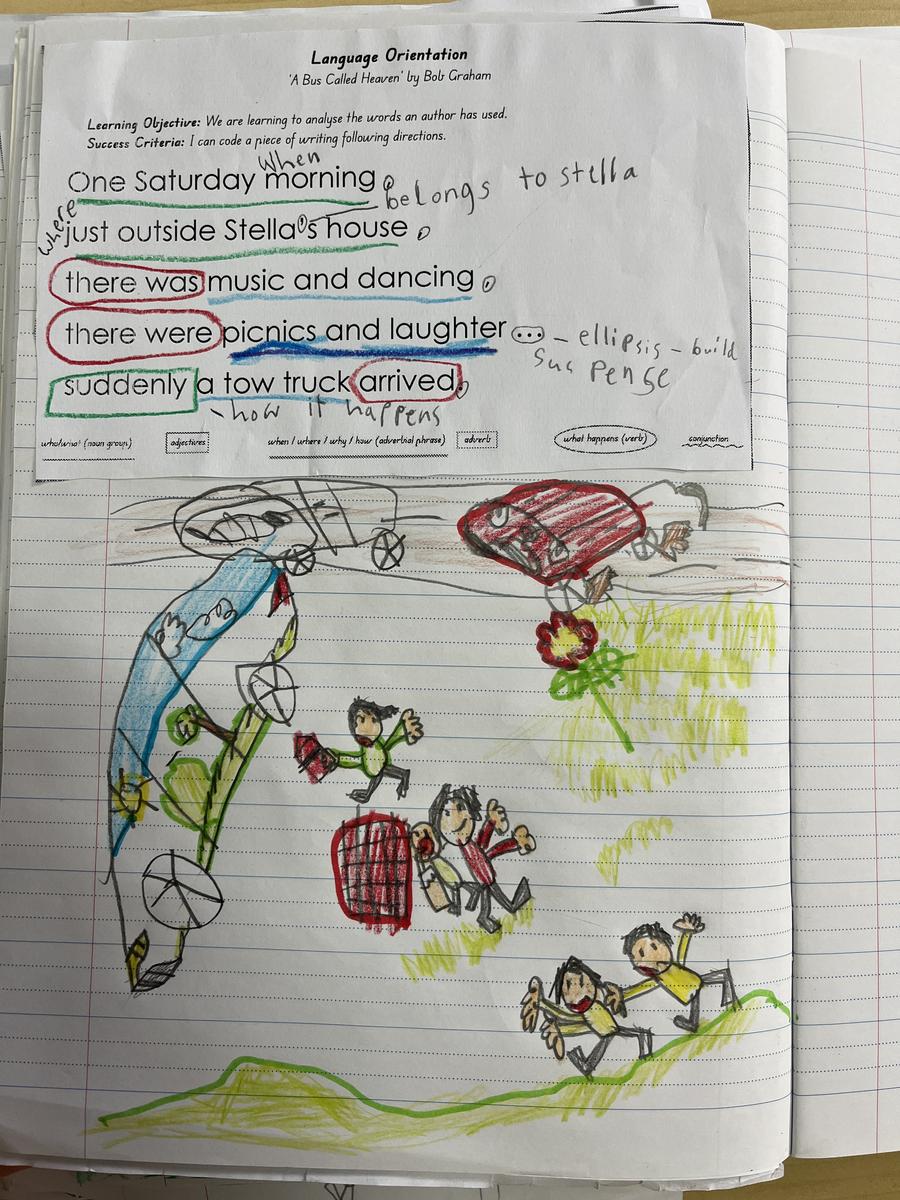 Language Orientation
'A Bus Called Heaven' by Bob Graham
Learning Objective: We are learning to analyse the words an author has used.
Success Criteria: I can code a piece of writing following directions.
When
One Saturday morning,
belongs to stella
where
just outside Stella's house,
there was music and dancing,
there were picnics and laughter... – ellipsis – build
suspense
suddenly a tow truck arrived.
- how it happens
who/what (noun group) adjectives when / where / why / how (adverbial phrase) adverb what happens (verb) conjunction